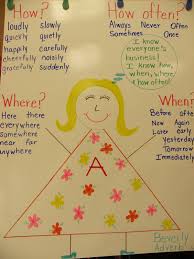 How?
loudly slowly
quickly quietly
happily carefully
cheerfully noisily
gracefully suddenly
How often?
Always Never Often
Sometimes Once
I know
everyone's
business!
I know how,
when, where
& how often!
Where?
Here there
everywhere
somewhere
near far
anywhere
When?
Before Soon
Now Again
Later Early
Yesterday
Tomorrow
Immediately
A
Beverly
Adverb